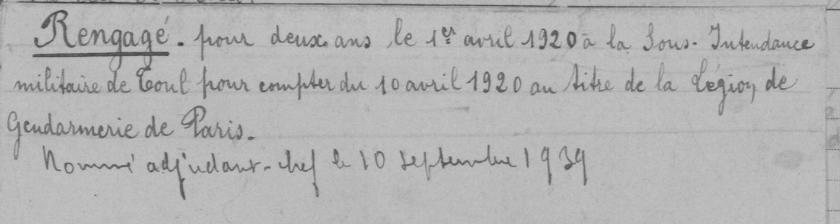 Rengagé. pour deux ans le 1er avril 1920 à la Sous-Intendance
militaire de Toul pour compter du 10 avril 1920 au titre de la Légion de
Gendarmerie de Paris.
Nommé adjudant-chef le 10 septembre 1939